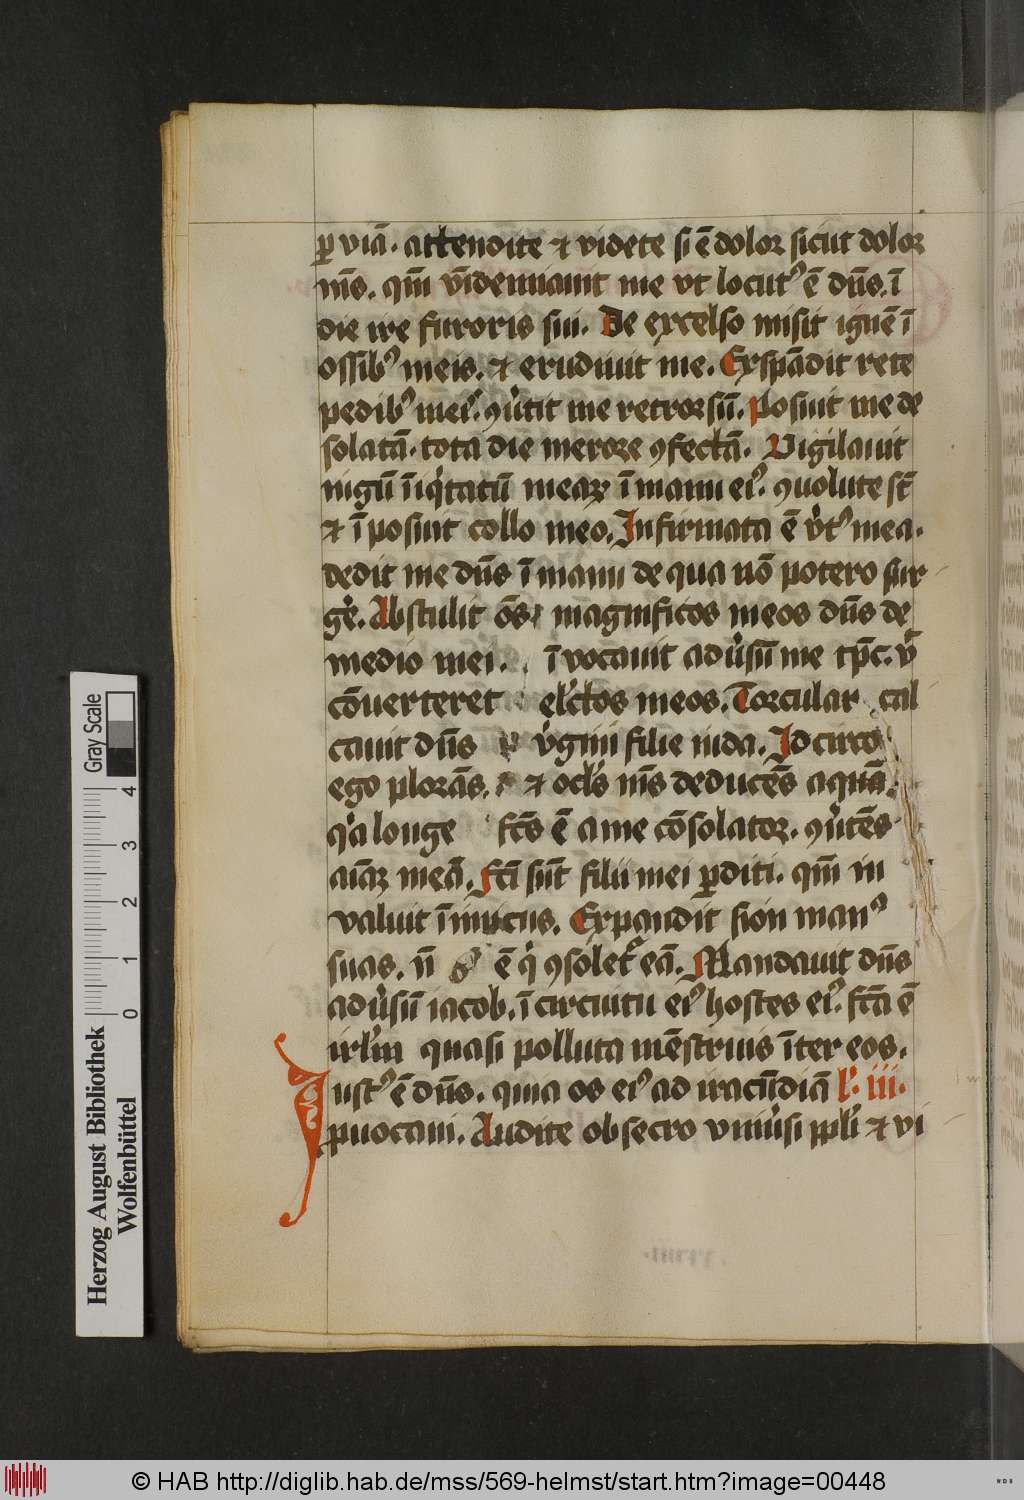 ꝑ viā. attendite ⁊ videte si ē dolor sicut dolor
mēs. qm̄ vīdemiauit me vt locutꝰ ē dn̄s. ī
die ire furoris sui. De excelso misit ignē ī
ossibꝰ meis. ⁊ erudiuit me. Exspādit rete
pedibꝰ meiꝰ. ꝯu̓tit me retrorsū. posuit me de
solatā. tota die merore ꝯfectā. Vigilauit
iugū īiq̓tatū mearꝝ ī manu eiꝰ. ꝯuolute st̄
⁊ īposuit collo meo. Infirmata ē v̓tꝰ mea.
dedit me dn̄s ī manu de qua nō potero sur
ge̓. Abstulit oēs magnificos meos dn̄s de
medio mei. ī vocauit adu̓sū me tp̄c. vt̄
cōuerteret el̓ctos meos. Torcular cal
cauit dn̄s v̓gini filie iuda. Idcirco
ego plorās. ⁊ ocl̓s mēs deducēs aquā
q̓a longe fc̄s ē a me cōsolator. ꝯu̓tēs
aīaꝫ meā. fc̄i sūt filii mei ꝑditi. qm̄ in
valuit īimicus. Expandit sion manꝰ
suas. n̄ ē q̓ ꝯsolet̄ eā. Mandauit dn̄s
adu̓sū iacob. ī circuitu eiꝰ hostes eiꝰ. fc̄a ē
irl̓m quasi polluta mēstruis īter eos.
Iustꝰ ē dn̄s. quia os eiꝰ ad iracūdiā l̓. iii.
ꝓuocaui. Audite obsecro vniu̓si ppl̓i ⁊ vi
Gray Scale
4
3
2
1
0
Herzog August Bibliothek
Wolfenbüttel
© HAB http://diglib.hab.de/mss/569-helmst/start.htm?image=00448